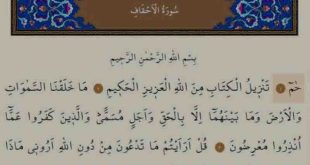 سُورَةُ الْأَحْقَافِ
بِسْمِ اللّٰهِ الرَّحْمٰنِ الرَّحِيمِ
حٰمٓ ۞ تَنْزِيلُ الْكِتَابِ مِنَ اللّٰهِ الْعَزِيزِ الْحَكِيمِ ۞ مَا خَلَقْنَا السَّمٰوَاتِ
وَالْاَرْضَ وَمَا بَيْنَهُمَٓا اِلَّا بِالْحَقِّ وَاَجَلٍ مُسَمًّىۜ وَالَّذِينَ كَفَرُوا عَمَّٓا
اُنْذِرُوا مُعْرِضُونَ ۞ قُلْ اَرَاَيْتُمْ مَا تَدْعُونَ مِنْ دُونِ اللّٰهِ اَرُونِي مَاذَا